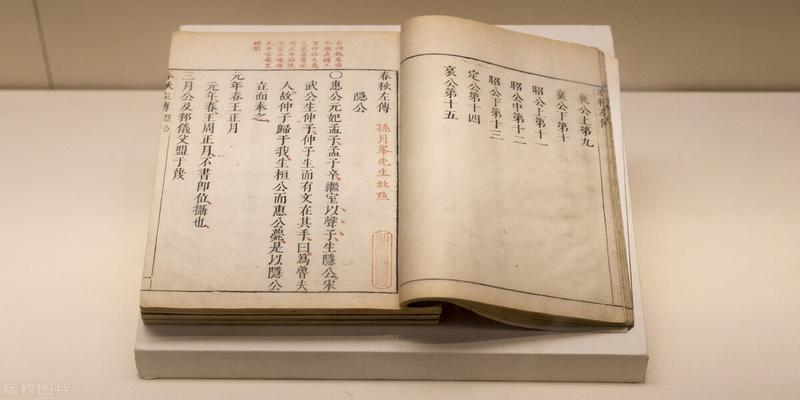 春秋左傳
襄公上第九
襄公下第十
昭公上第十一
昭公中第十二
昭公下第十三
定公第十四
哀公第十五
春秋左傳 孫月峯先生批點
隱公
○惠公元妃孟子孟子卒繼室以聲子生隱公宋
武公生仲子仲子生而有文在其手曰為魯夫
人故仲子歸于我生桓公而惠公薨是以隱公
立而奉之
元年春王正月
元年春王周正月不書即位攝也
三月公及邾儀父盟于蔑
春秋左傳 隱公
版权图片